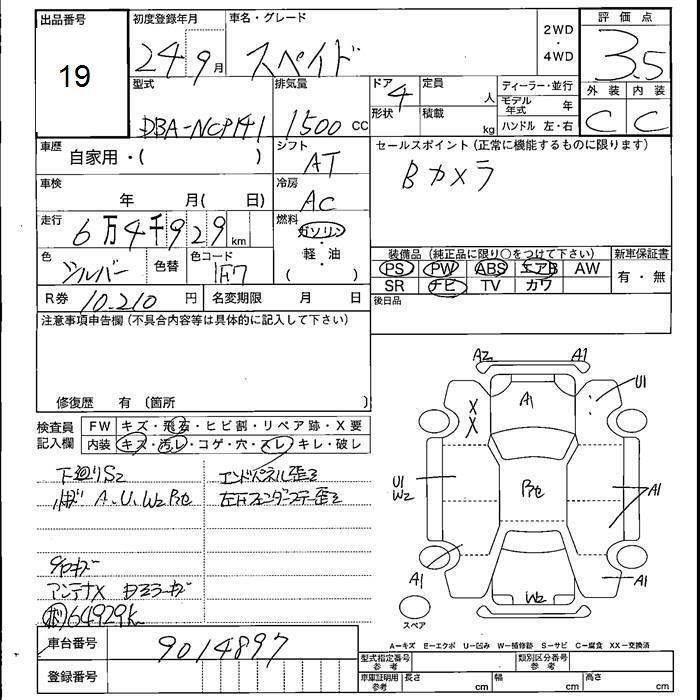 出品番号
19
初度登録年月
24 9月
車名・グレード
スペイド
2WD
・
4WD
評価点
3.5
外装 内装
C C
型式
DBA-NCP141
排気量
1500 CC
ドア
4
形状
定員
人
積載
kg
ディーラー・並行
モデル年式 年
ハンドル 左・右
車歴
自家用・( )
シフト
AT
セールスポイント(正常に機能するものに限ります)
Bカメラ
車検
年 月( 日)
冷房
AC
走行
6万4千929km
燃料
ガソリン
・
軽・油
( )
色
シルバー
色替
色コード
1F7
装備品 (純正品に限り○をつけて下さい)
PS PW ABS エアB AW
SR ナビ TV カワ
新車保証書
有・無
R券 10.210 円
名変期限 月 日
後日品
注意事項申告欄(不具合内容等は具体的に記入して下さい)
修復歴 有 (箇所 )
検査員
記入欄
FW キズ・飛石・ヒビ割・リペア跡・X要
内装 キズ・汚レ・コゲ・穴・スレ・キレ・破レ
下廻りS2
A、U、W2
エンドパネル歪ミ
左Fフェンダーステー歪ミ
アンテナX
64929k
A2 A1
U1
A1
X
X
U1
W2
A1
A1
A1
W2
スペア
A=キズ E=エクボ U=凹み W=補修跡 S=サビ C=腐食 XX=交換済
車台番号
9014897
登録番号
型式指定番号
参考
類別区分番号
参考
車庫証明用
参考
長さ cm
幅 cm
高さ cm